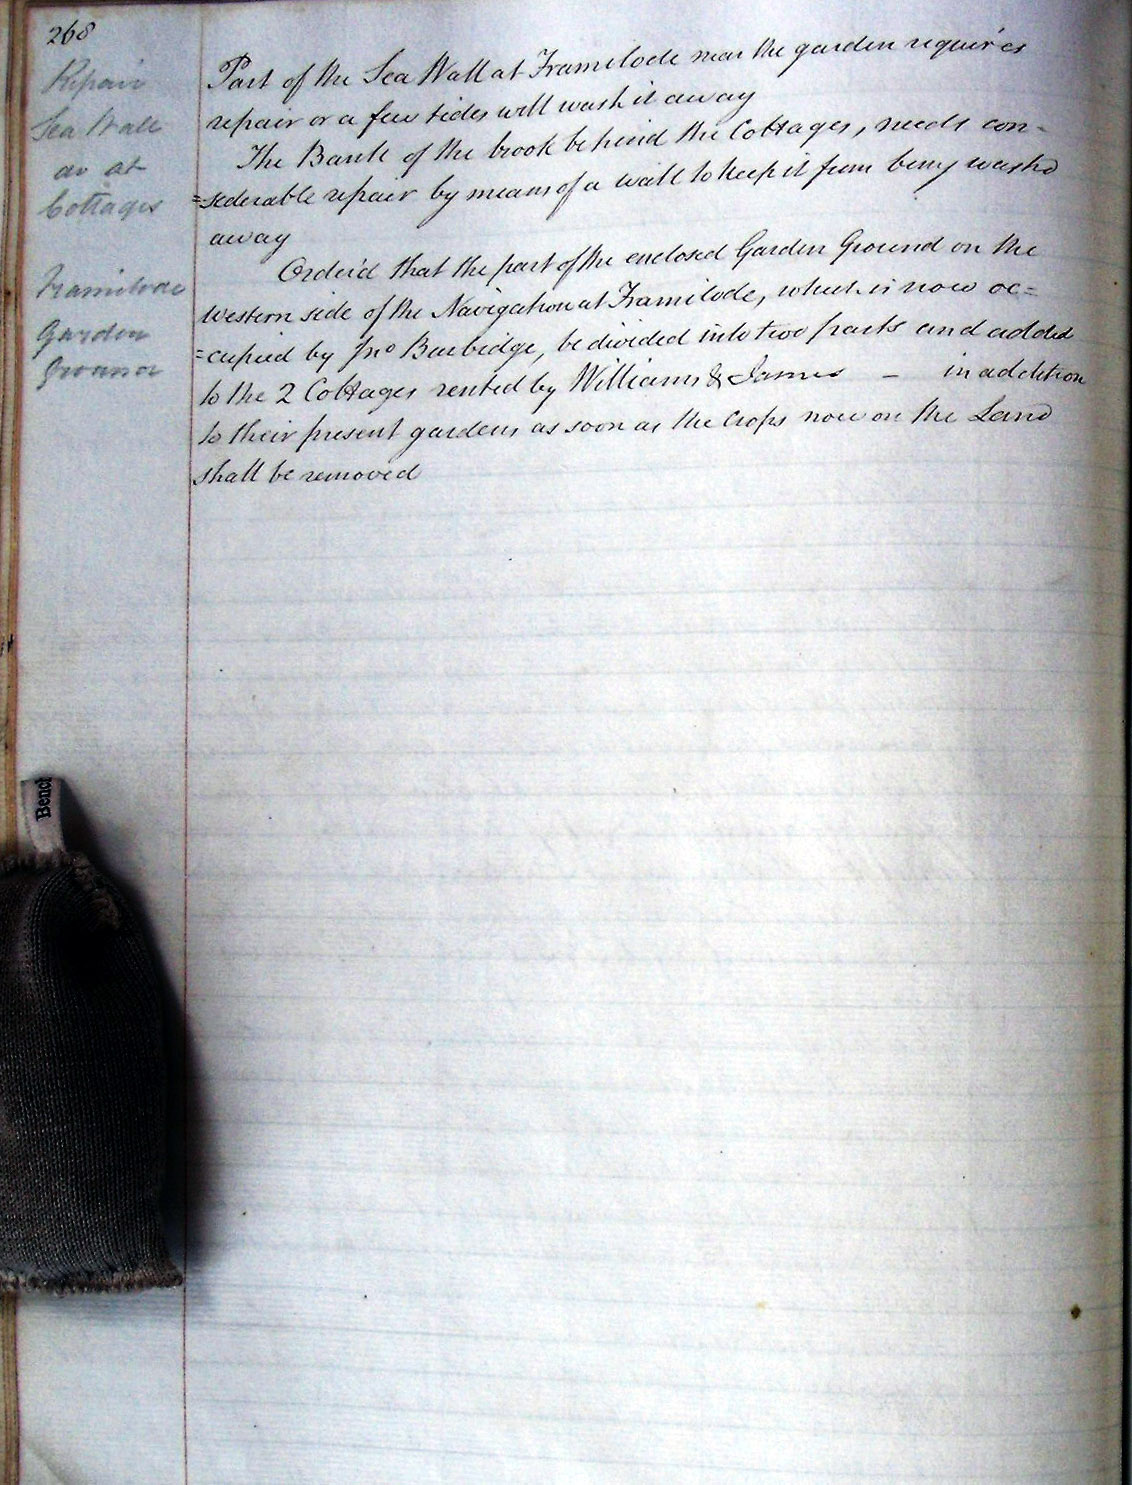 268
Repair
Sea Wall
do at
Cottages
Part of the Sea Wall at Framilode near the garden requires
repair or a few tides will wash it away
The Bank of the brook behind the Cottages, needs con-
=siderable repair by means of a wall to keep it from being washd
away
Framilode
Garden
Ground
Order'd that the part of the enclosed Garden Ground on the
western side of the Navigation at Framilode, which is now oc=
=cupied by Jno Burbidge, be divided into two parts and added
to the 2 Cottages rented by Williams & James - in addition
to their present gardens as soon as the Crops now on the Land
shall be removed
Bench